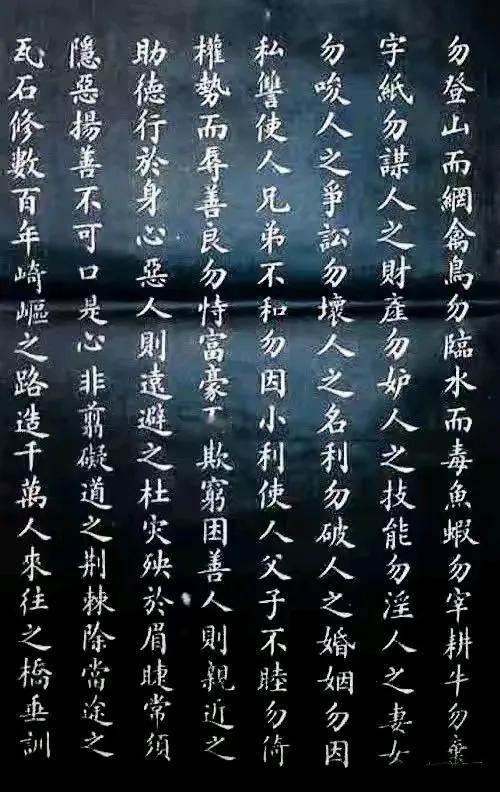 勿登山而網禽鳥勿臨水而毒魚蝦勿宰耕牛勿棄
字紙勿謀人之財產勿妒人之技能勿淫人之妻女
勿唆人之爭訟勿壞人之名利勿破人之婚姻勿因
私讐使人兄弟不和勿因小利使人父子不睦勿倚
權勢而辱善良勿恃富豪欺窮困善人則親近之
助德行於身心惡人則遠避之杜灾殃於眉睫常須
隱惡揚善不可口是心非翦礙道之荆棘除當途之
瓦石修數百年崎嶇之路造千萬人來往之橋垂訓